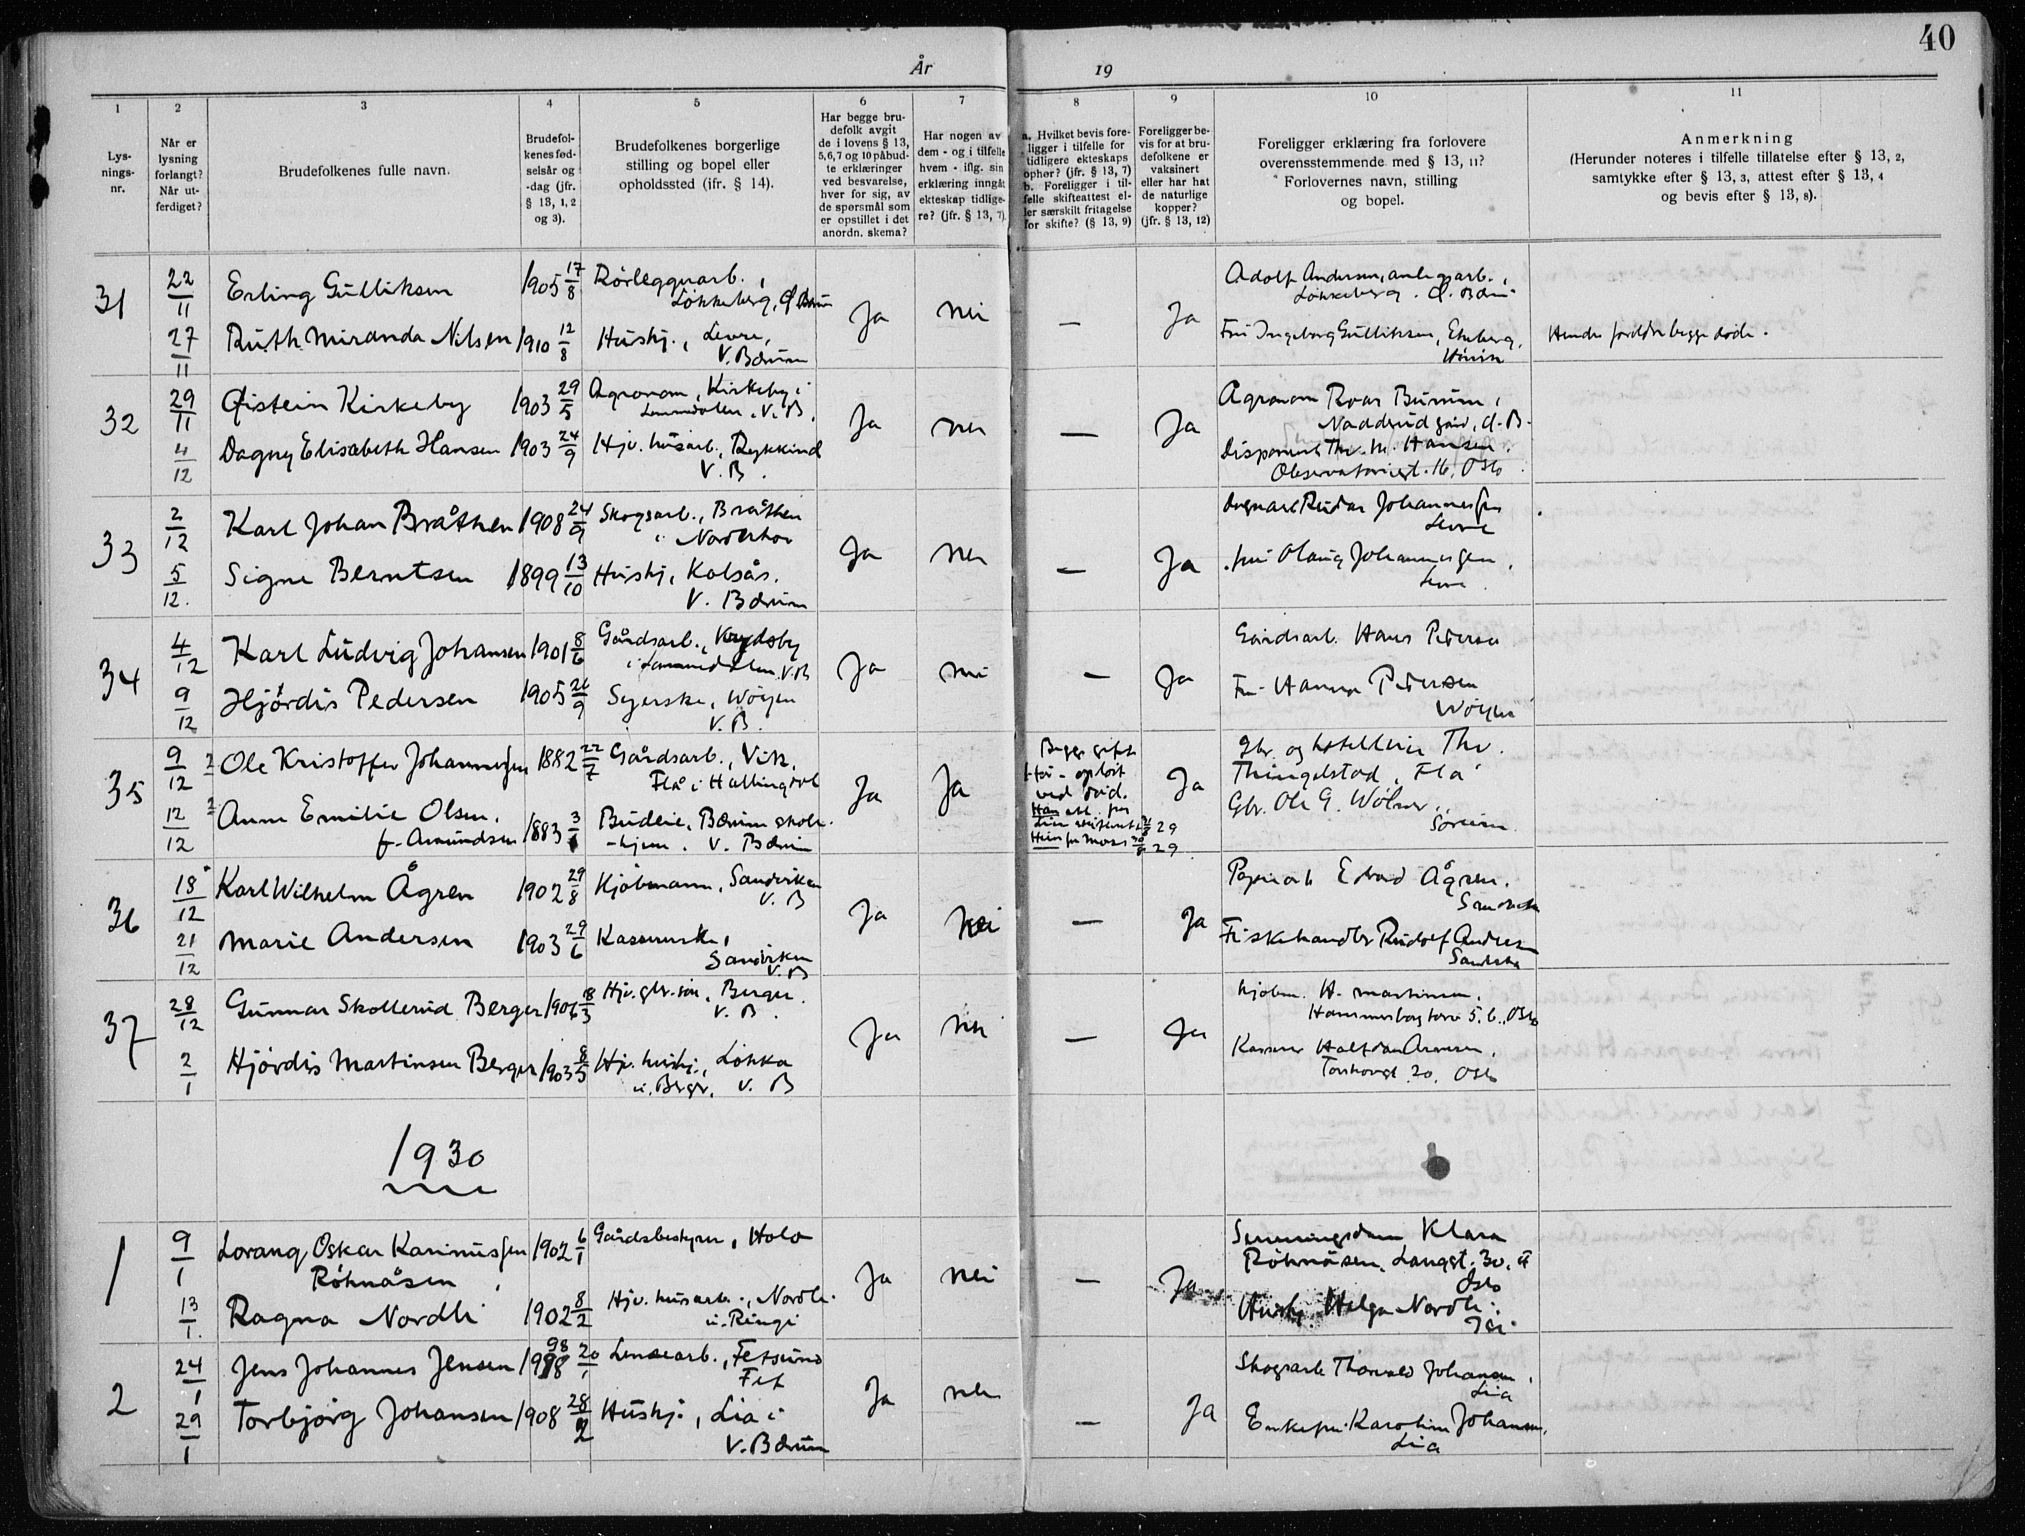 40
År 19
1 2 3 4 5 6 7 8 9 10 11
Lys-
nings-
nr.
Når er
lysning
forlangt?
Når ut-
ferdiget?
Brudefolkenes fulle navn.
Brudefol-
kenes fød-
selsår og
-dag (jfr.
§ 13, 1, 2
og 3).
Brudefolkenes borgerlige
stilling og bopel eller
opholdssted (ifr. § 14).
Har begge bru-
defolk avgit
de i lovens § 13,
5,6,7 og 10 påbud-
te erklæringer
ved besvarelse,
hver for sig, av
de spørsmål som
er opstillet i det
anordn. skema?
Har nogen av
dem - og i tilfelle
hvem - iflg. sin
erklæring inngått
ekteskap tidlige-
re? (jfr. § 13, 7)
a. Hvilket bevis fore-
ligger i tilfelle for
tidligere ekteskaps
ophør? (jfr. § 13, 7)
b. Foreligger i til-
felle skifteattest el-
ler særskilt fritagelse
for skifte? (§ 13, 9)
Foreligger be-
vis for at bru-
defolkene er
vaksinert
eller har hat
de naturlige
kopper?
(jfr. § 13, 12)
Foreligger erklæring fra forlovere
overensstemmende med § 13, 11?
Forlovernes navn, stilling
og bopel.
Anmerkning
(Herunder noteres i tilfelle tillatelse efter § 13, 2,
samtykke efter § 13, 3, attest efter § 13, 4
og bevis efter § 13, 8).
31
22/11 Erling Gulliksen 1905 17/8 Rørleggerarb.,
Løkkeberg, Ø. Bærum
Ja nei — Ja
Adolf Andersen, anleggsarb.,
Løkkeberg. Ø. Bærum
27/11 Ruth Miranda Nilsen 1910 12/8 Hushj., Levre,
V. Bærum
Fru Ingeborg Gulliksen,
Hennes foreldre begge døde.
32
29/11 Øistein Kirkeby 1903 29/5 Agronom, Kirkeby i
Lommedalen. V. B.
Ja nei — Ja
Agronom Roar Burum,
Nadderud gård, Ø. B.
4/12 Dagny Elisabeth Hansen 1903 24/9 Hjv. husarb., Rykkinn
V. B.
Disponent Thv. M. Hansen.
Observatoriegt. 16, Oslo
33
2/12 Karl Johan Bråthen 1908 24/9 Skogsarb., Bråthen
i Norderhov
Ja nei — Ja
Reidar Johannessen
Levre
5/12. Signe Berntsen 1899 13/10 Hushj, Kolsås.
V. Bærum
fru Olaug Johannessen,
Levre
34
4/12 Karl Ludvig Johansen 1901 8/6 Gårdsarb.,
i Lommedalen. V. B
Ja nei — Ja
Gårdsarb. Hans Pedersen
9/12 Hjørdis Pedersen 1905 26/9 Syerske, Wøyen
V. B.
Fru Hanna Pedersen
Wøyen
35
9/12 2 Ole Kristoffer Johannessen 1882 22/7 Gårdsarb., Vik,
Flå i Hallingdal
Ja Ja
Begge gifte
før - opløst
ved død.
Han att. fra
29
Hun fra Moss 29
Ja
Gbr. og hotelleier Thv.
Thingelstad, Flå
12/12 2 Anne Emilie Olsen,
f. Amundsen 1883 3/1 Budeie, Bærum skole-
-hjem. V. Bærum
Gbr. Ole G. Wølner..
Sørum
36
18/12 Karl Wilhelm Ågren 1902 29/8 Kjøbmann, Sandviken
V. B
Ja nei — Ja
Ågren.
Sandviken
21/12 Marie Andersen 1903 29/6 Kassererske,
Sandviken
V. B
Fiskehandler Rudolf Andersen
Sandvika
37
28/12 Gunnar Skollerud Berger 1906 18/3 Hjv. gbr. søn, Berger.
V. B.
Ja nei — Ja
Kjøbm. H. Martinsen,
Hammersborg torv 5. b., Oslo
2/1 Hjørdis Martinsen Berger 1903 8/5 Hjv. hushj., Løkka
u. Berger. V. B
Kasserer Halfdan
20. Oslo
1930
1
9/1 Lorang Oskar Karinussen
Röhnåsen 1902 6/1 Gårdsbestyrer, Holo
Ja nei — Ja
Klara
Röhnåsen, Langgt. 30. II
Oslo
13/1. Ragna Nordli 1902 8/2 Hjv. husarb., Nordli
u. Ringi
Hushj. Helga Nordli.
2
24/1 Jens Johannes Jensen 1898 20/1 Lensearb., Fetsund
Fet
Ja nei — Ja
Skogsarb. Thorvald Johansen,
Lia
29/1 Torbjörg Johansen 1908 28/2 Hushj., Lia i
V. Bærum
Enkefru Karoline Johansen,
Lia